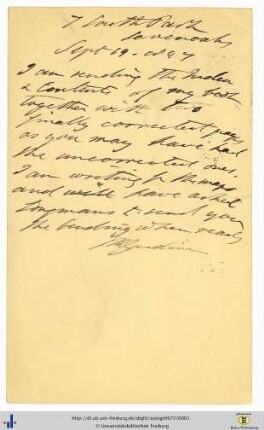 7 South Park
Sevenoaks
Sept 19. 1897
I am sending the Index
& Contents of my book
together with two
finally corrected pages
as you may have had
the uncorrected ones.
I am writing for the maps
and have asked
Longmans to send you
the binding when ready
http://dl.ub.uni-freiburg.de/diglit/autogr0677/0001
© Universitätsbibliothek Freiburg